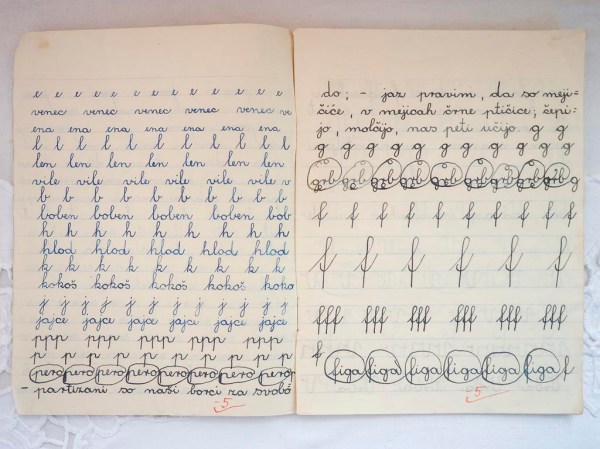 e e e e e e e e e e e e e
venec venec venec venec venec ve
ena ena ena ena ena ena ena
l l l l l l l l l l l l
len len len len len len
vile vile vile vile vile v
b b b b b b b b b b
boben boben boben boben bob
h h h h h h h h h
hlod hlod hlod hlod hlod
k k k k k k k k k
kokoš kokoš kokoš kokoš koko
j j j j j j j j j j
jajce jajce jajce jajce jajce jajce
ppp ppp ppp ppp ppp
p p p p p p p p p p
pero pero pero pero pero pero pero pero
- partizani so naši borci za svobo
-5
do; - jaz pravim, da so meji=
čiće, v mejicah črne ptičice; čepi=
jo, molčijo, nas peti učijo. g g
g g g g g g g g g g
grb grb grb grb grb grb grb grb g
f f f f f f f f f f
f f f f f f
fff fff fff fff fff fff
f
figa figa figa figa figa figa f
-5